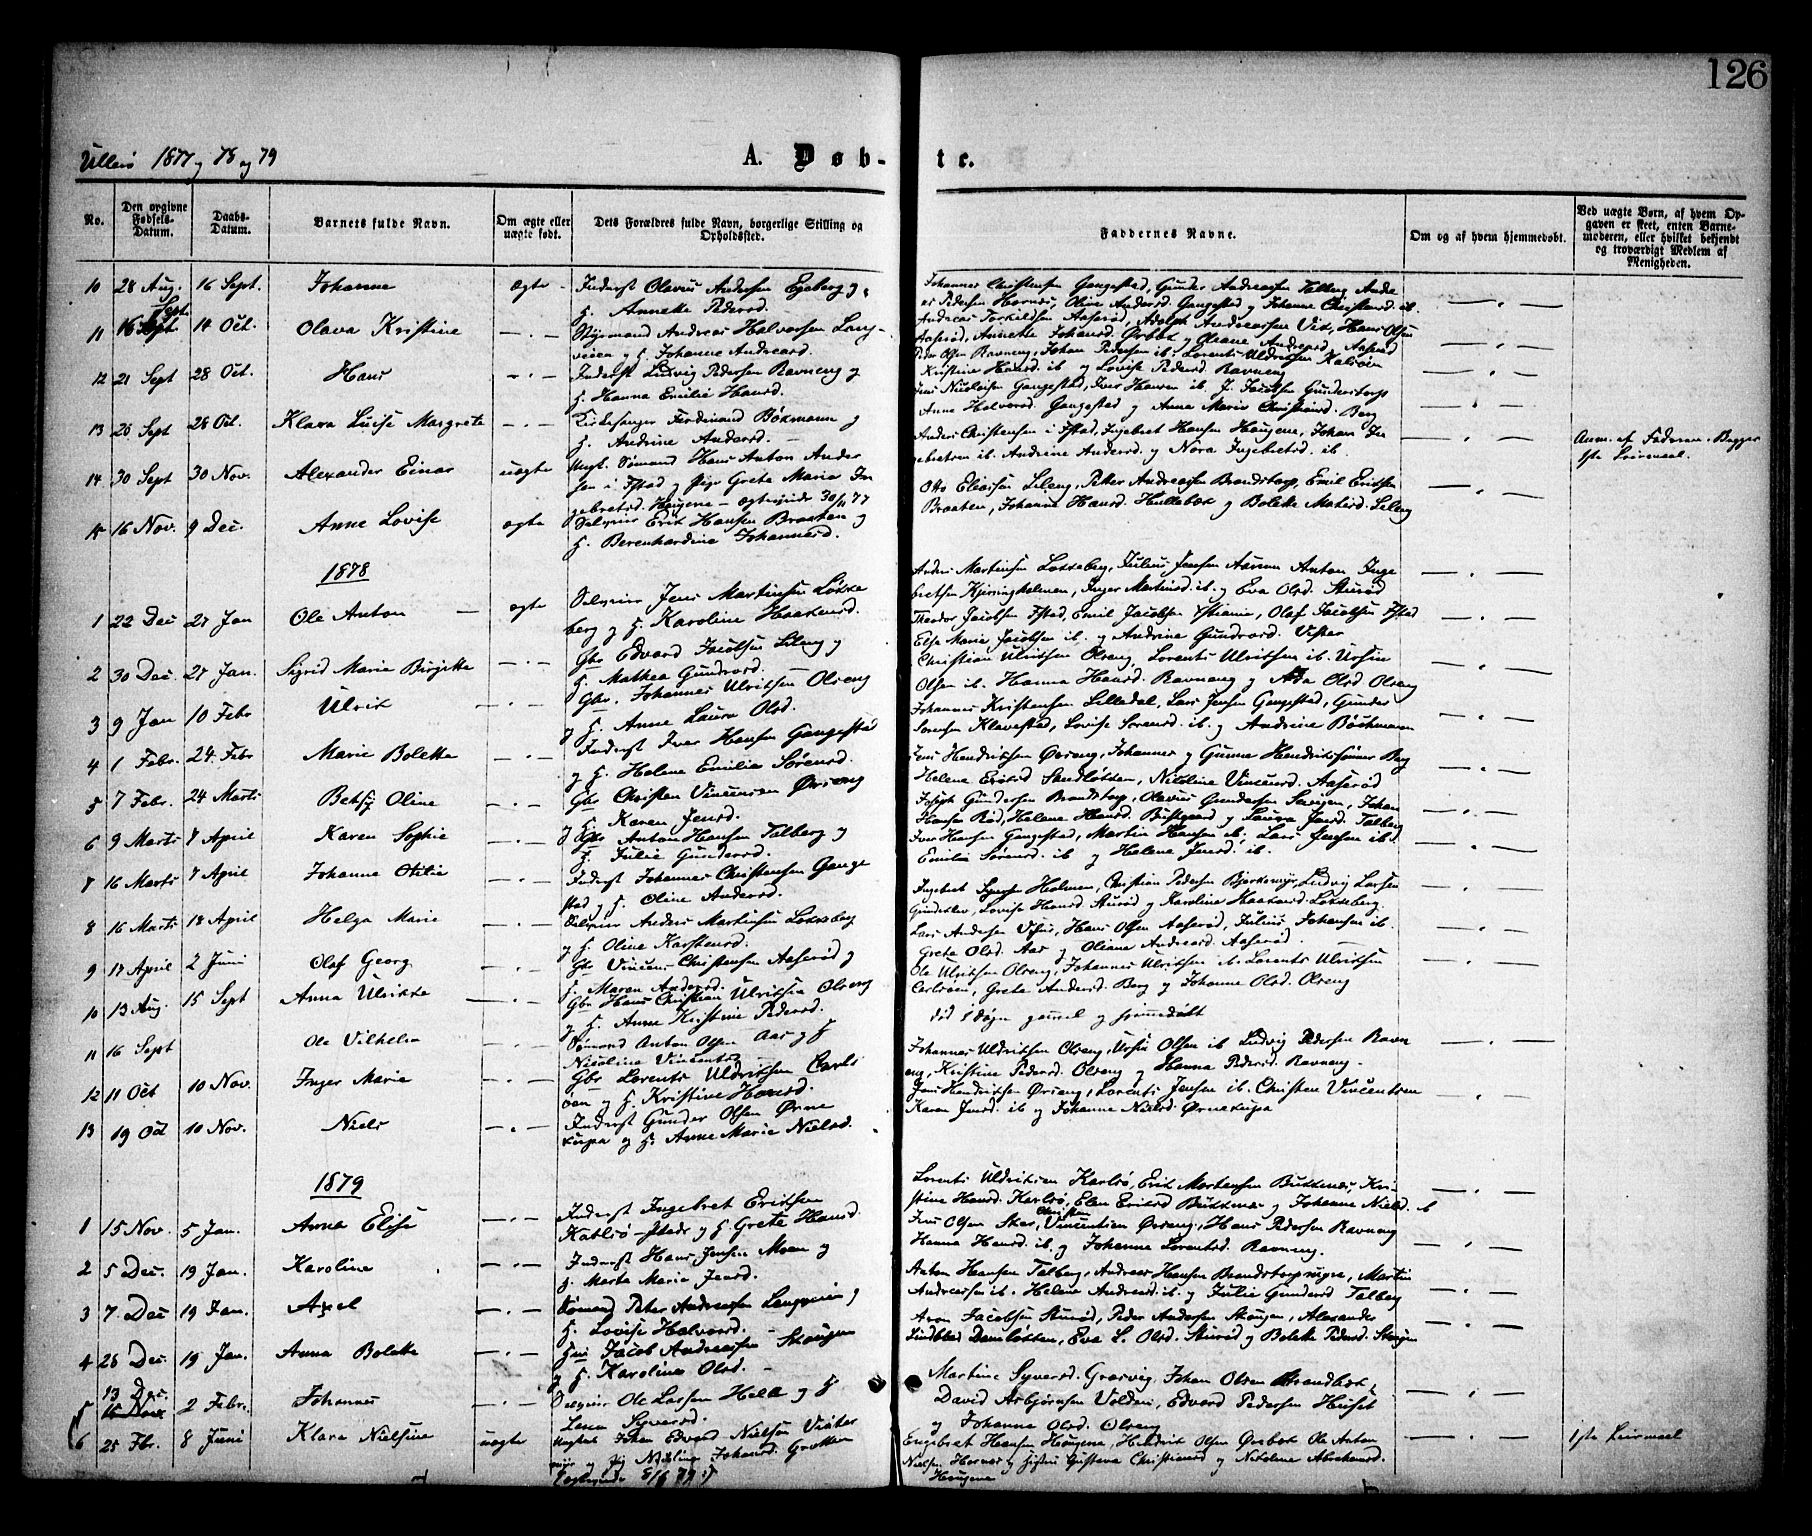 126
Ullerø 1877 og 78 og 79
A. Døb- te.
No.
Den opgivne Fødsels-Datum.
Daabs-Datum.
Barnets fulde Navn.
Om ægte eller uægte født.
Dets Forældres fulde Navn, borgerlige Stilling og Opholdssted.
Faddernes Navne.
Om og af hvem hjemmedøbt.
Ved uægte Børn, af hvem Opgaven er skeet, enten Barnemoderen, eller hvilket bekjendt og troværdigt Medlem af Menigheden.
10 28 Aug. 16 Sept. Johanne ægte Inderst Olavus Andersen Egeberg og
H. Anneke Pedersd.
Johannes Christensen Gangestad, Gunder Andreassen Talberg, Ande
as Pedersen Hornes, Oline Andersd. Gangestad og Johanne Christensd. ib.
11 16 Sept 14 Oct. Olava Kristine Styrmand Andreas Halvorsen Lang
veien og H. Johanne Andreasd.
Andreas Torkildsen Aaserød, Adolph Andreassen Vix, Hans Olsen
Aaserød, Annette Johansd. Ørbek og Oleane Andreasd. Aaserød
12 21 Sept 28 Oct. Hans Inderst Ludvig Pedersen Ravneng og
H. Hanna Emilie Hansd.
Peder Olsen Ravneng, Johan Pedersen ib. Lorents Uldriksen Kalrøen
Kristine Hansd. ib og Lovise Pedersd. Ravneng
13 26 Sept 28 Oct. Klara Luise Margrete Kirkesanger Ferdinand Bökmann og
H. Andrine Andersd.
Jens Nicolaisen Gangestad, Iver Hansen ib. J. Jacobsen Gunderstorp
Anne Halvorsd. Gangestad og Anna Marie Christiansd. Berg
14 30 Sept 30 Nov. Alexander Einar uægte Ungk. Sömand Hans Anton Ander
sen i Ystad og Pige Grete Marie In
gebretsd. Haugene - ægteviede 30/11 77
Anders Christensen i Ystad, Ingebret Hansen Haugene, Johan In
gebretsen ib. Andrine Andersd. og Nora Ingebretsd. ib.
Anm. af Faderen. Begges
1ste Leiermaal.
15 16 Nov. 9 Dec. Anne Lovise ægte Selveier Erik Hansen Braaten og
H. Berenhardine Johannesd.
Otto Eliassen Lileng, Peter Andreassen Brandstorp, Emil Eriksen
Braaten, Johanne Hansd. Hullebek og Bolette Matisd. Lileng
1878
1 22 Dec 27 Jan Ole Anton ægte Selveier Jens Martinsen Løkke
berg og H. Karoline Haagensd.
Anders Martinsen Løkkeberg, Julius Jensen Aarum Anton Inge
bretsen Kjerringholmen, Inger Martinsd. ib. og Eva Olsd. Stuerød
2 30 Dec. 27 Jan. Sigrid Marie Birgitte Gbr Edvard Jacobsen Lileng og
H. Mathea Gundersd.
Theodor Jacobsen Ystad, Emil Jacobsen Kristiania, Olaf Jacobsen Ystad
Else Marie Jacobsen ib. og Andrine Gundersd. Vister
3 9 Jan 10 Febr Ulrik Gbr. Johannes Ulriksen Olreng
og H. Anne Laura Olsd.
Christian Ulriksen Olreng, Lorents Ulriksen ib. Ursin
Olsen ib. Hanna Hansd. Ravneng og Ada Olsd. Olreng
4 1 Febr. 24. Febr Marie Bolette Inderst Iver Hansen Gangestad
og H. Helene Emilie Sørensd.
Johannes Kristensen Lilledal, Lars Jensen Gangestad, Gunder
Sørensen Klavestad, Lovise Sørensd. ib. og Andrine Böckmann
5 7 Febr. 24 Marts Betsy Oline Gbr Christen Vincensen Ørseng
og H. Karen Jensd.
Jens Hendriksen Ørseng, Johannes og Gunne Hendriksønner Berg
Helene Eriksd Sandløkken, Nicoline Vincensd. Aaserød
6 9 Marts 7 April Karen Sophie Gbr Anton Hansen Talberg og
H. Julie Gundersd.
Joseph Gundersen Brandstorp, Olavus Gundersen Saugen, Johan
Hansen Rød, Helene Hansd. Bustgaard og Laura Jensd. Talberg
7 16 Marts 7 April Johanne Otilie Inderst Johannes Christensen Gange
stad og H. Oline Andersd.
Iver Hansen Gangestad, Martin Hansen ib. Lars Jensen ib.
Emilie Sørensd. ib og Helene Jensd. ib.
8 16 Marts 18 April Helga Marie Selveier Anders Martinsen Løkkeberg
og H. Oline Karstensd.
Ingebret Syversen Holmen, Christian Pedersen Bjerkemyr, Ludvig Larsen
Gunderslev, Lovise Hansd Stuerød og Karoline Haagensd. Løkkeberg.
9 17 April 2 Juni Olaf Georg Gbr Vincens Christensen Aaserød og
H. Maren Andersd.
Lars Andersen Viker, Hans Olsen Aaserød, Julius Johansen ib.
Grete Olsd. Aas og Oliana Andreasd. Aaserød
10 13 Aug. 15 Sept Anna Ulrikke Gbr Hans Christian Ulriksen Olreng
og H. Anne Kristine Pedersd.
Ole Ulriksen Olreng, Johannes Ulriksen ib. Lorents Ulriksen
Carlsøen, Grete Andersd. Berg og Johanne Olsd. Olreng
11 16 Sept Ole Vilhelm Sømand Anton Olsen Aas og H
Nicoline Vincentsd.
död 1 Døgn gammel og hjemmedøbt
12 11 Oct 10 Nov. Inger Marie Gbr Lorents Uldriksen Carls
öen og H. Kristine Hansd.
Johannes Uldriksen Olreng, Ursin Olsen ib Ludvig Pedersen Ravn
eng, Kristine Pedersd. Olreng og Hanna Pedersd. Ravneng.
13 19 Oct 10 Nov. Niels Inderst Gunder Olsen Ørne
kupa og H. Anne Marie Nielsd.
Jens Hendriksen Ørseng, Lorents Jensen ib. Christen Vincentsen
Karen Jensd. ib og Johanne Nielsd. Ørnekupa
1879
1 15 Nov. 5 Jan. Anna Elise Inderst Ingebret Eriksen
Kalrö-Plads og H. Grete Hansd.
Lorents Uldriksen Karlsö, Erik Mortensen Buttnes, Kri
stine Hansd. Karlsö, Elen Eriksd Buttnes og Johanne Nielsd. ib
2 5 Dec. 19 Jan. Karoline Inderst Hans Jensen Moen og
H. Marte Marie Jensd.
Jens Olsen Skar, Christen Vincentsen Ørseng, Hans Pedersen Ravneng
Hanna Hansd. ib. og Johanne Lorentsd. Ravneng.
3 7 Dec 19 Jan. Axel Sømand Peter Andreassen Langveien og
H. Lovise Halvorsd.
Anton Hansen Talberg, Andreas Hansen Brandstorpeiene, Martin
Andreassen ib. Helene Andreasd. ib. og Julie Gundersd Talberg
4 26 Dec. 19 Jan. Anna Bolette Jacob Andreassen Skougen
og H. Karoline Olsd.
Aron Jacobsen Stuerød, Peder Andersen Skougen, Alexander
Lindblad Damsløkken, Eva L. Olsd. Stuerød og Bolette Pedersd. Skougen
5 13 Dec. 15 Nov. 2 Febr. Johannes Selveier Ole Larsen Helle og H
Lena Syversd.
Martine Syversd. Græsvig, Johan Olsen Strandbek,
David Asbjørnsen Volden, Edvard Pedersen Huset
og Johanna Olsd. Olreng
6 25 Fbr. 8 Juni Klara Nielsine uægte Ungkarl Johan Edvard Nielsen Vister
myr og Pig Nicoline Johansd. Grotten
ægteviede 8/6 79
Engebret Hansen Haugene, Hendrik Olsen Ørebek Ole Anton
Nielsen Hornes og Gustava Christiansd. og Nicoline Abrahamsd.
Haugene
1ste Leiermaal